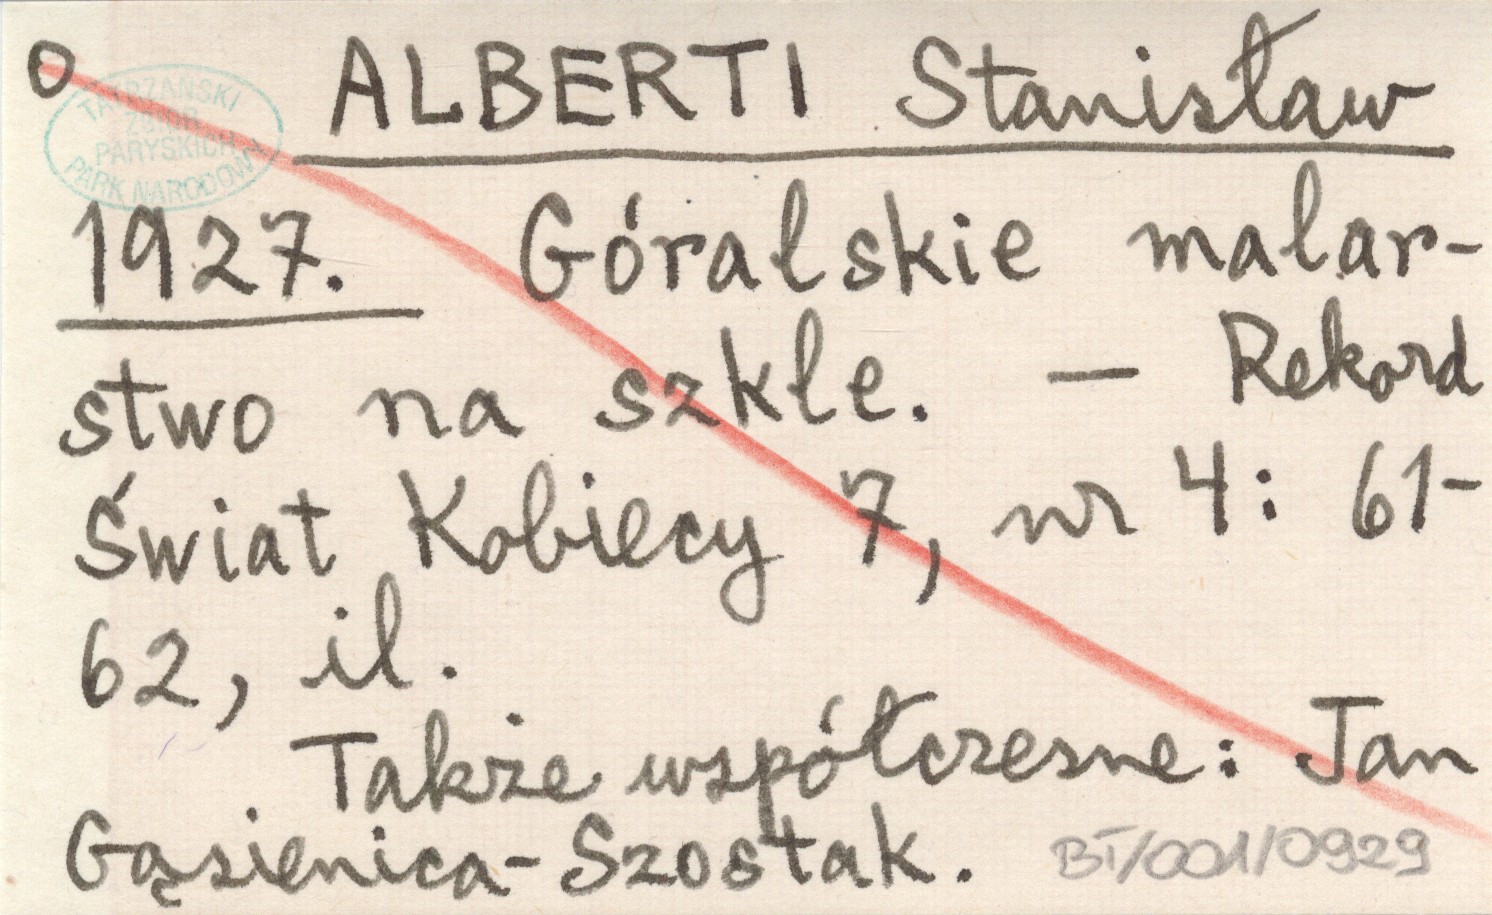 O ALBERTI Stanisław
TATRZAŃSKI
ZBIÓR
PARYSKICH
PARK NARODOWY
1927. Góralskie malar-
stwo na szkle. — Rekord
Świat Kobiecy 7, nr 4: 61-
62, il.
Także współczesne: Jan
Gąsienica-Szostak.
BT/001/0929